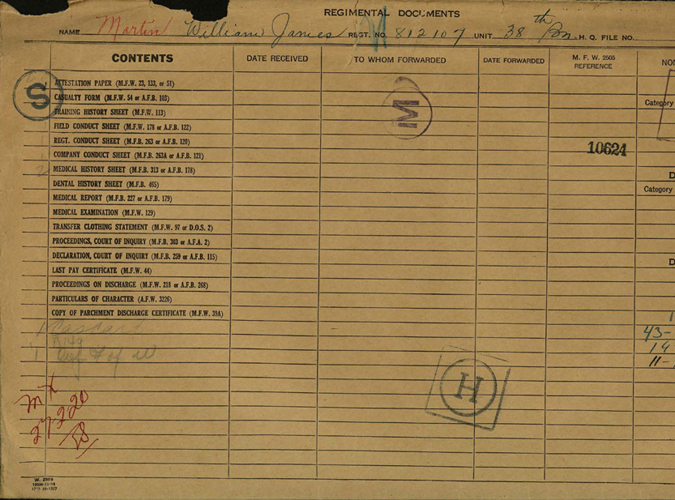 REGIMENTAL DOCUMENTS
NAME Martin William James REGT. NO. 812107 UNIT 38th Bn. H. Q. FILE NO.
CONTENTS DATE RECEIVED TO WHOM FORWARDED DATE FORWARDED M. F. W. 2505 REFERENCE
ATTESTATION PAPER (M.F.W. 23, 133, or 51)
S CASUALTY FORM (M.F.W. 54 or A.F.B. 103) M Category
TRAINING HISTORY SHEET (M.F.W. 113)
FIELD CONDUCT SHEET (M.F.W. 178 or A.F.B. 122)
REGT. CONDUCT SHEET (M.F.B. 263 or A.F.B. 120) 10624
COMPANY CONDUCT SHEET (M.F.B. 263A or A.F.B. 121)
MEDICAL HISTORY SHEET (M.F.B. 313 or A.F.B. 178) D
DENTAL HISTORY SHEET (M.F.B. 465) Category
MEDICAL REPORT (M.F.B. 227 or A.F.B. 179)
MEDICAL EXAMINATION (M.F.W. 129)
TRANSFER CLOTHING STATEMENT (M.F.W. 97 or D.O.S. 2)
PROCEEDINGS, COURT OF INQUIRY (M.F.B. 303 or A.F.A. 2)
DECLARATION, COURT OF INQUIRY (M.F.B. 259 or A.F.B. 115)
LAST PAY CERTIFICATE (M.F.W. 44) D
PROCEEDINGS ON DISCHARGE (M.F.W. 218 or A.F.B. 268)
PARTICULARS OF CHARACTER (A.F.W. 3226)
COPY OF PARCHMENT DISCHARGE CERTIFICATE (M.F.W. 39A) 1
43-
19
11-
H
MX
27220
W. 2505